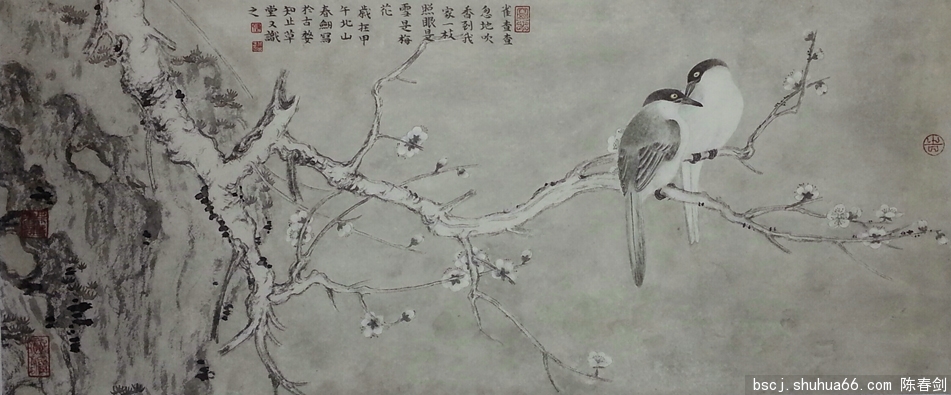 雀查查
忽地吹
香到我
家一枝
照眼是
雪是梅
花
歲在甲
午北山
春劍寫
於古婺
知止草
堂又識
之
bscj.shuhua66.com 陈春剑